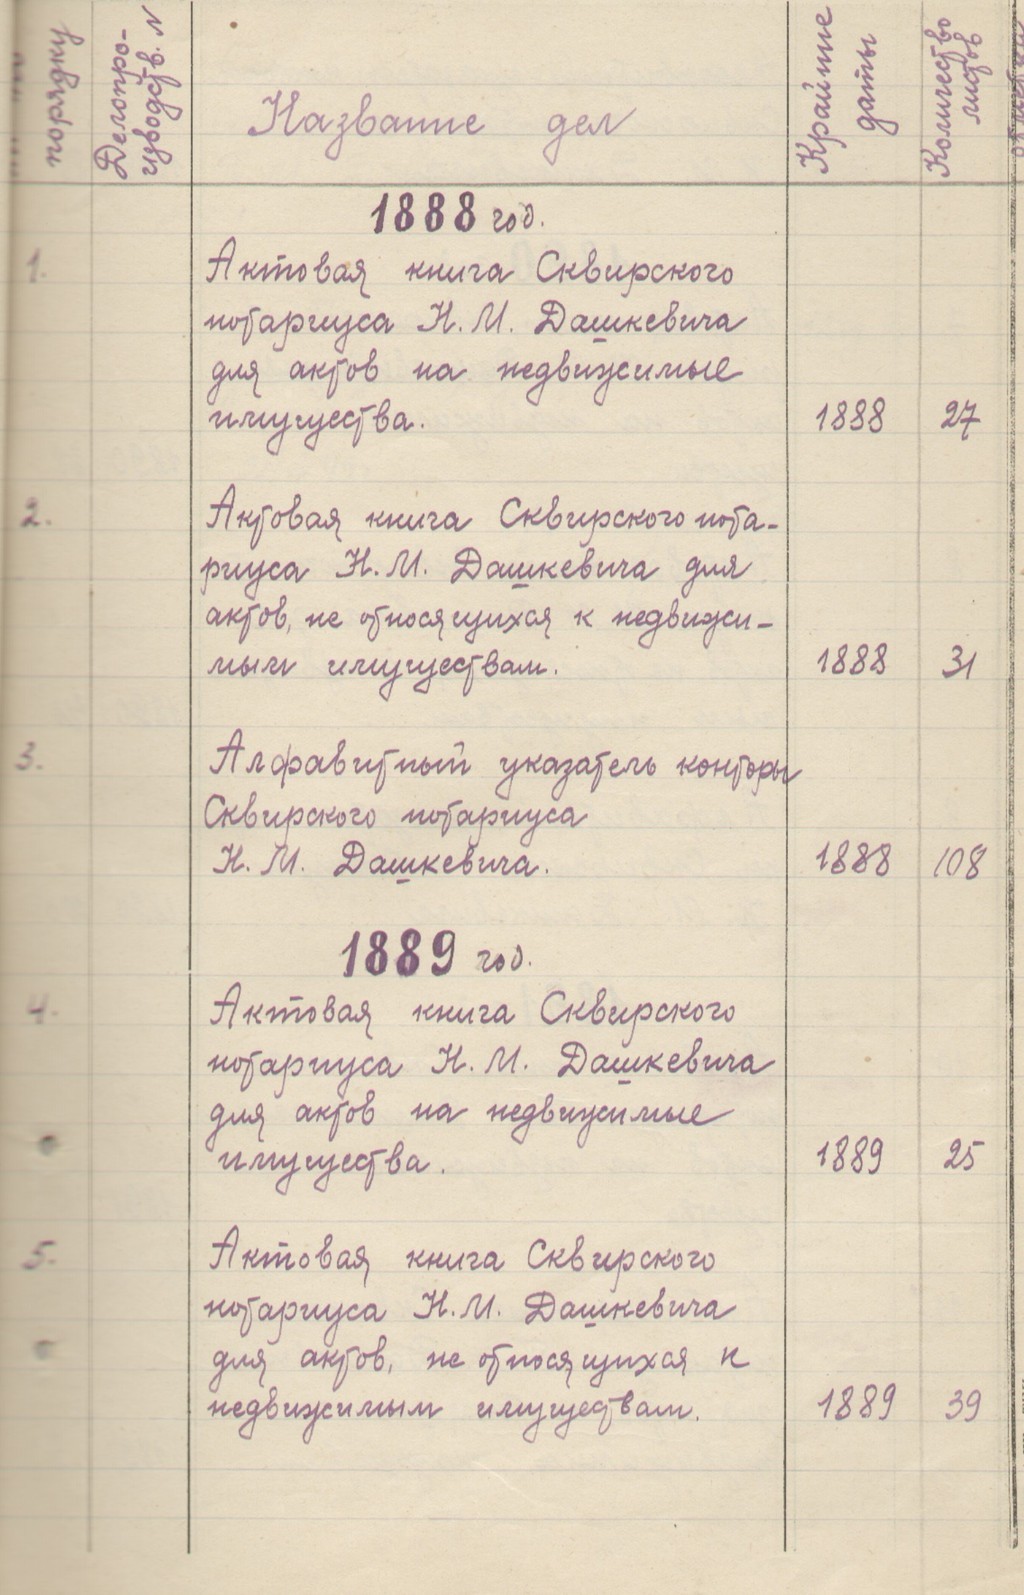 порядку
Делопро-
изводств. N
Название дел
Крайние
даты
Количество
листов
1888 год.
1.
Актовая книга Сквирского
нотариуса Н. М. Дашкевича
для актов на недвижимые
имущества. 1888 27
2.
Актовая книга Сквирского нота-
риуса Н. М. Дашкевича для
актов, не относящихся к недвижи-
мым имуществам. 1888 31
3.
Алфавитный указатель конторы
Сквирского нотариуса
Н. М. Дашкевича. 1888 108
1889 год.
4.
Актовая книга Сквирского
нотариуса Н. М. Дашкевича
для актов на недвижимые
имущества. 1889 25
5.
Актовая книга Сквирского
нотариуса Н. М. Дашкевича
для актов, не относящихся к
недвижимым имуществам. 1889 39